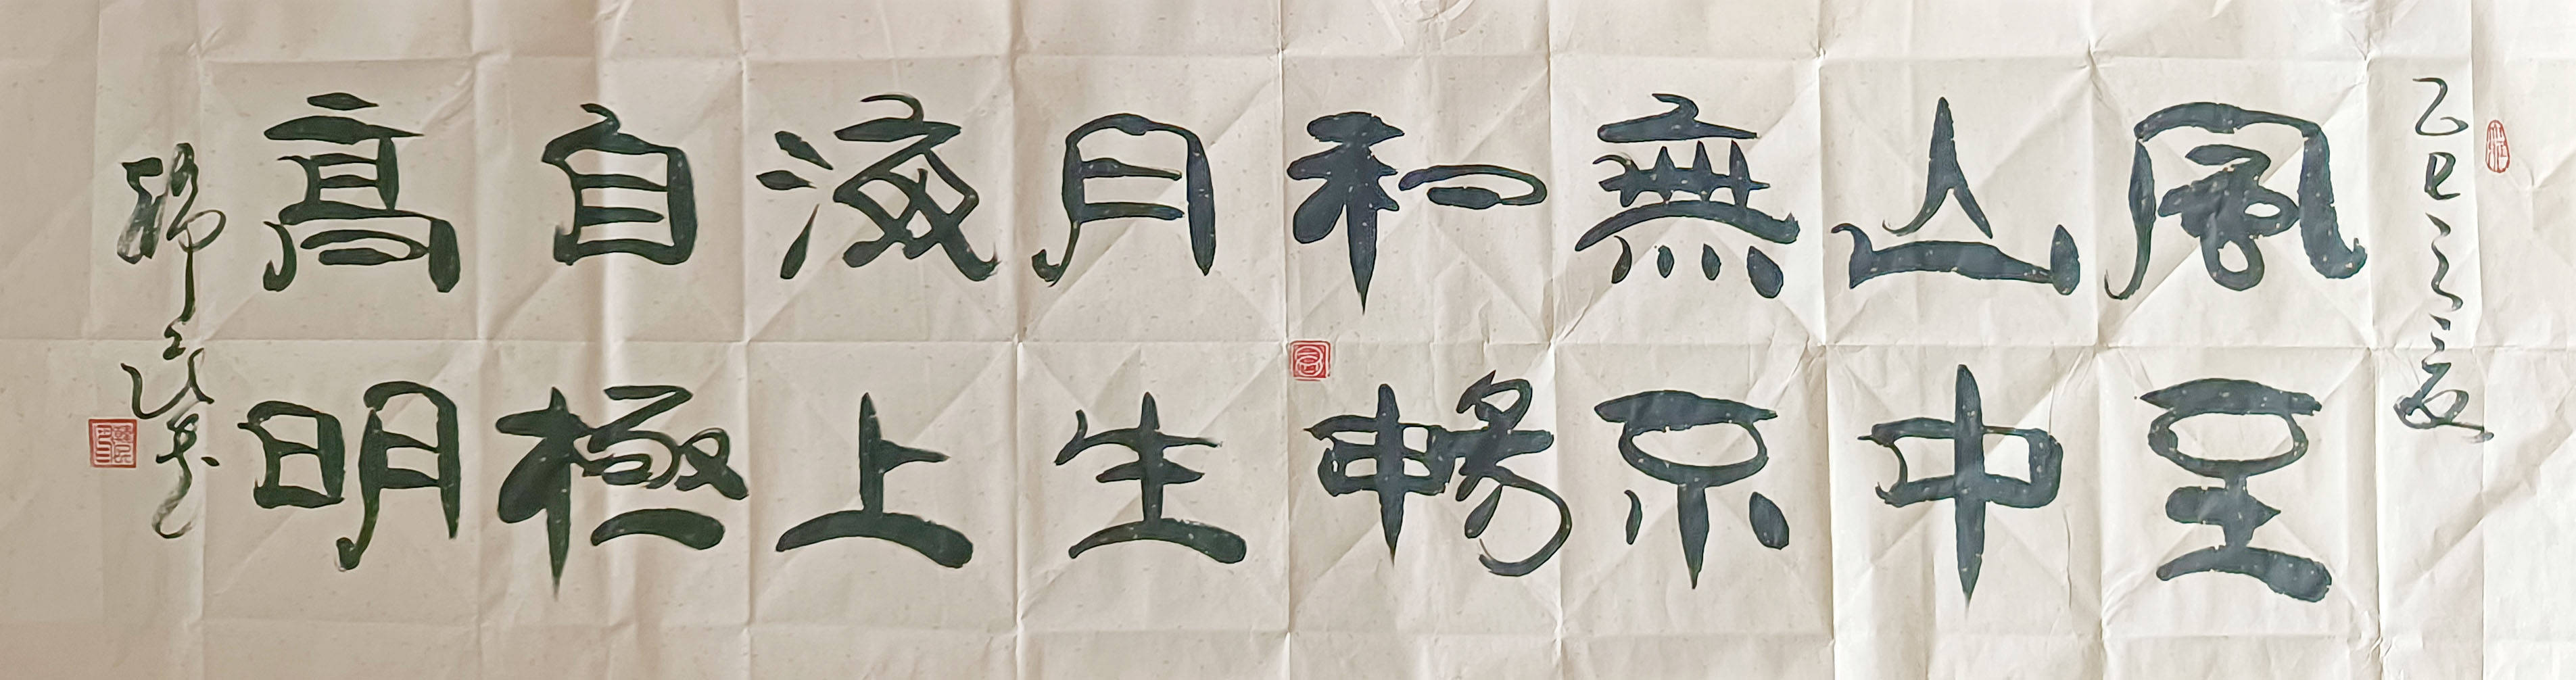 乙巳之夏
風至
山中
無不
和暢
月生
海上
自極
高明